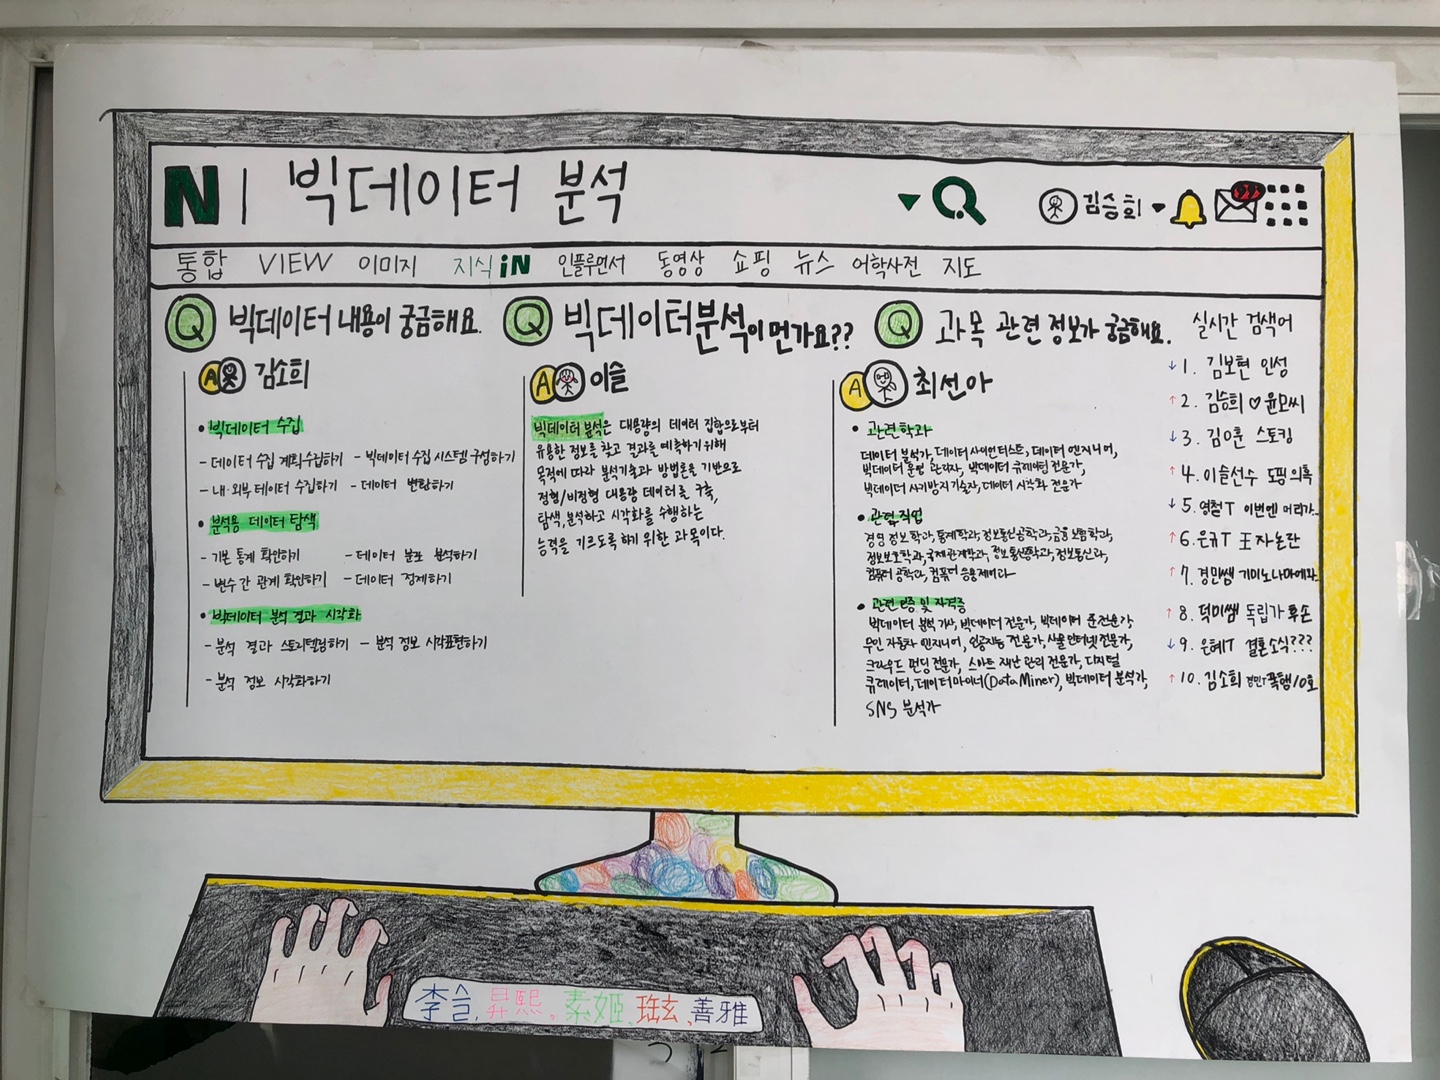 N 빅데이터 분석
김승희
통합 VIEW 이미지 지식iN 인플루언서 동영상 쇼핑 뉴스 어학사전 지도
Q 빅데이터 내용이 궁금해요.
A 김소희
• 빅데이터 수집
- 데이터 수집 계획수립하기 - 빅데이터 수집 시스템 구성하기
- 내·외부 데이터 수집하기 - 데이터 변환하기
• 분석용 데이터 탐색
- 기본 통계 확인하기 - 데이터 분포 분석하기
- 변수 간 관계 확인하기 - 데이터 정제하기
• 빅데이터 분석 결과 시각화
- 분석 결과 스토리텔링하기 - 분석 정보 시각표현하기
- 분석 정보 시각화하기
Q 빅데이터분석이 먼가요??
A 이슬
빅데이터 분석은 대용량의 데이터 집합으로부터
유용한 정보를 찾고 결과를 예측하기 위해
목적에 따라 분석기술과 방법론을 기반으로
정형/비정형 대용량 데이터를 구축,
탐색, 분석하고 시각화를 수행하는
능력을 기르도록 하기 위한 과목이다.
Q 과목 관련 정보가 궁금해요.
A 최선아
• 관련학과
데이터 분석가, 데이터 사이언티스트, 데이터 엔지니어,
빅데이터 운영 관리자, 빅데이터 큐레이팅 전문가,
빅데이터 사기방지 기술자, 데이터 시각화 전문가
• 관련 직업
경영 정보 학과, 통계학과, 정보통신공학과, 금융 보험학과,
정보보호학과, 국제관계학과, 정보통신학과, 정보통신과,
컴퓨터 공학과, 컴퓨터 응용제어과
• 관련 인증 및 자격증
빅데이터 분석 기사, 빅데이터 전문가, 빅데이터 준전문가,
무인 자동차 엔지니어, 인공지능 전문가, 사물인터넷 전문가,
크라우드 펀딩 전문가, 스마트 재난 관리 전문가, 디지털
큐레이터, 데이터마이너(Data Miner), 빅데이터 분석가,
SNS 분석가
실시간 검색어
↓1. 김보현 인성
↑2. 김승희♡윤모씨
↓3. 김이훈 스토킹
↑4. 이슬선수 도핑의혹
↓5. 영철T 이번엔 머리가...
↑6. 은규T 王자논란
↑7. 경민쌤
↑8. 덕미쌤 독립가 후손
↓9. 은혜T 결혼소식???
↑10. 김소희 경민T폭행10호
李슬, 昇熙, 素姬, 珪玄, 善雅